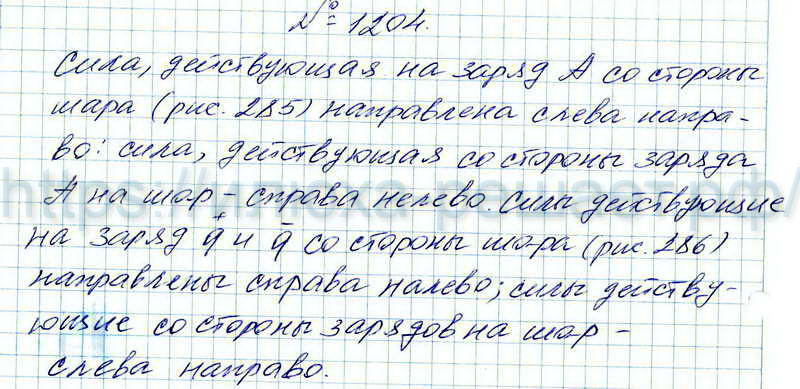 № 1204.
Сила, действующая на заряд А со стороны
шара (рис. 285) направлена слева напра-
во: сила, действующая со стороны заряда
А на шар – справа нелево. Силы действующие
на заряд q⁺ и q⁻ со стороны шара (рис. 286)
направлены справа налево; силы действу-
ющие со стороны зарядов на шар –
слева направо.